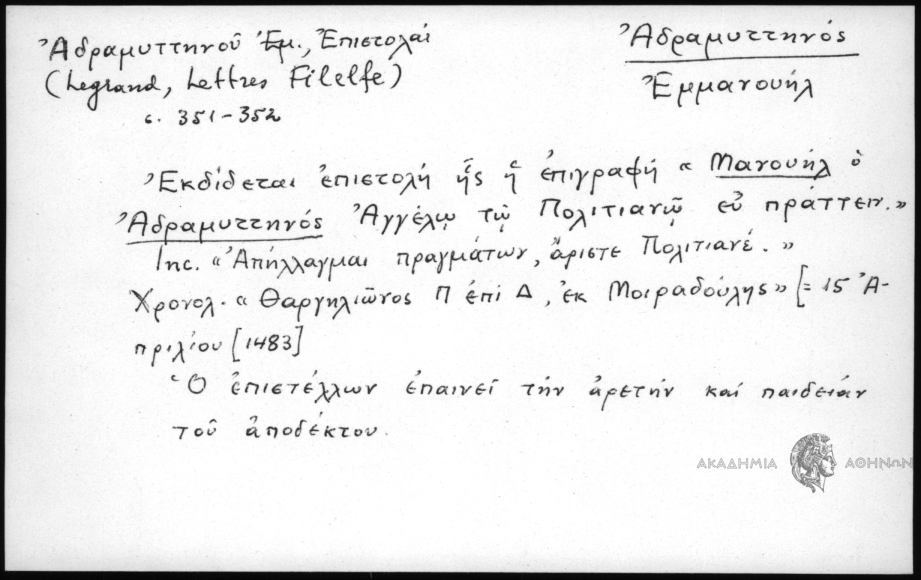 Ἀδραμυττηνοῦ Ἐμ., Ἐπιστολαί
(Legrand, Lettres Filelfe)
σ. 351-352
Ἀδραμυττηνός
Ἐμμανουήλ
Ἐκδίδεται ἐπιστολή ἧς ἡ ἐπιγραφή « Μανουήλ ὁ
Ἀδραμυττηνός Ἀγγέλῳ τῷ Πολιτιανῷ εὖ πράττειν.»
Inc. «Ἀπήλλαγμαι πραγμάτων, ἄριστε Πολιτιανέ.»
Χρονολ. «Θαργηλιῶνος Π ἐπί Δ, ἐκ Μοιραδούλης» [= 15 Ἀ-
πριλίου [1483]
Ὁ ἐπιστέλλων ἐπαινεῖ τήν ἀρετήν καί παιδείαν
τοῦ ἀποδέκτου.
ΑΚΑΔΗΜΙΑ ΑΘΗΝΩΝ